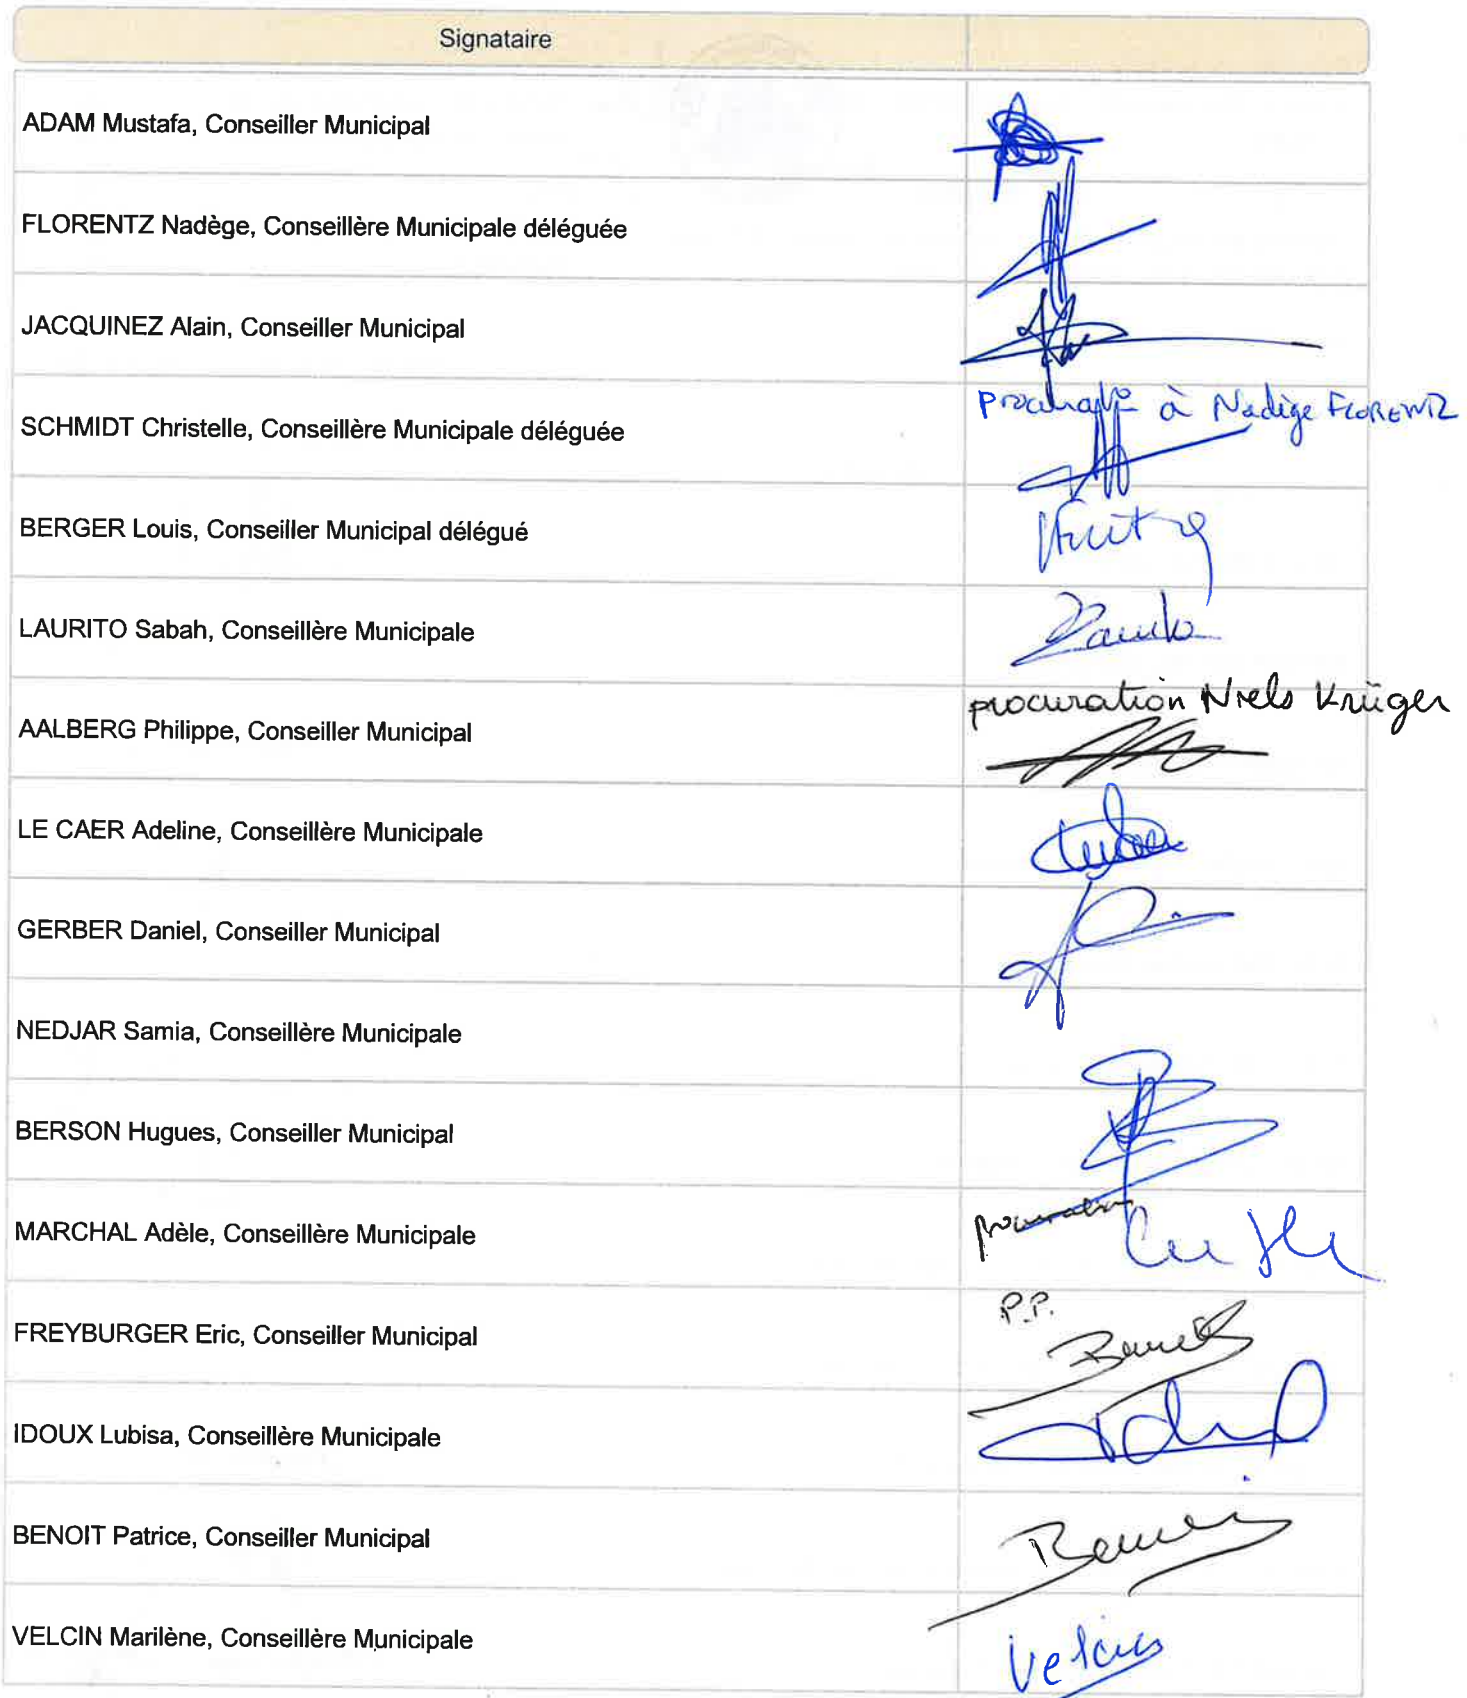 Signataire
ADAM Mustafa, Conseiller Municipal
FLORENTZ Nadège, Conseillère Municipale déléguée
JACQUINEZ Alain, Conseiller Municipal
SCHMIDT Christelle, Conseillère Municipale déléguée
à Nadège FLORENTZ
BERGER Louis, Conseiller Municipal délégué
LAURITO Sabah, Conseillère Municipale
procuration Niels Krüger
AALBERG Philippe, Conseiller Municipal
LE CAER Adeline, Conseillère Municipale
GERBER Daniel, Conseiller Municipal
NEDJAR Samia, Conseillère Municipale
BERSON Hugues, Conseiller Municipal
procuration
MARCHAL Adèle, Conseillère Municipale
P.P.
FREYBURGER Eric, Conseiller Municipal
IDOUX Lubisa, Conseillère Municipale
BENOIT Patrice, Conseiller Municipal
VELCIN Marilène, Conseillère Municipale
Velcin